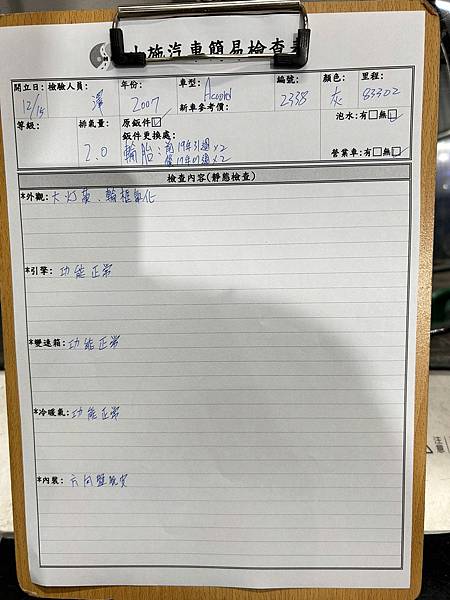 小施汽車簡易檢查表
開立日: 檢驗人員: 年份: 車型: 編號: 顏色: 里程:
12/15 澤 2007 Accord 2338 灰 83302
新車參考價:
等級: 排氣量: 原鈑件 泡水:有 無
2.0 鈑件更換處:
輪胎:前19年31週×2
後19年01週×2
營業車:有 無
檢查內容(靜態檢查)
*外觀: 大灯霧、輪框氧化
*引擎: 功能正常
*變速箱: 功能正常
*冷暖氣: 功能正常
*內裝: 方向盤脫皮
注意